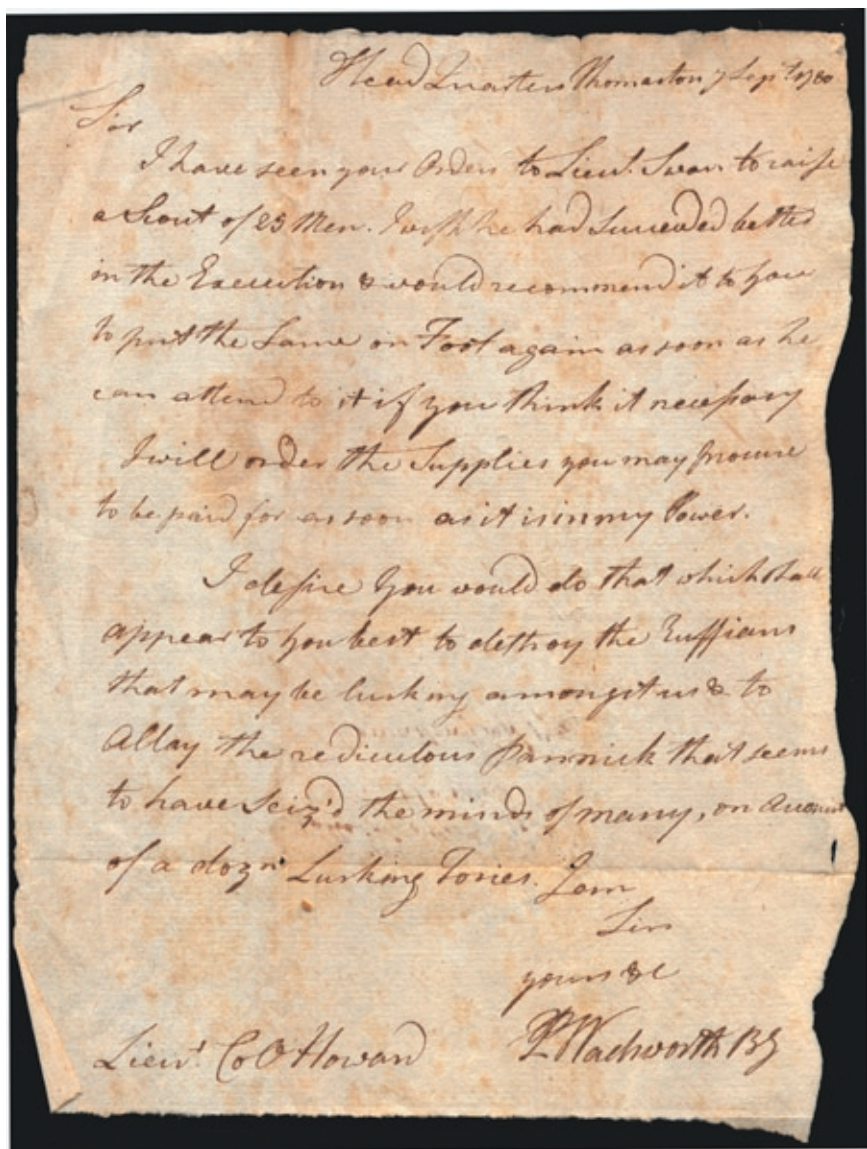 Head Quarters Thomaston 7 Sept 1780
Sir
I have seen your Orders to Lieut. Swan to raise
a Scout of 25 Men. I wish he had Succeeded better
in the Execution & would recommend it to you
to put the Same on Foot again as soon as he
can attend to it if you think it necessary
I will order the Supplies you may procure
to be paid for as soon as it is in my Power.
I desire You would do that which shall
appear to you best to destroy the Ruffians
that may be lurking amongst us & to
Allay the rediculous Pannick that seems
to have Seiz'd the minds of many, on Account
of a dozn Lurking Tories. I am
Sir
yours &c
P Wadsworth BG
Lieut Col Howard